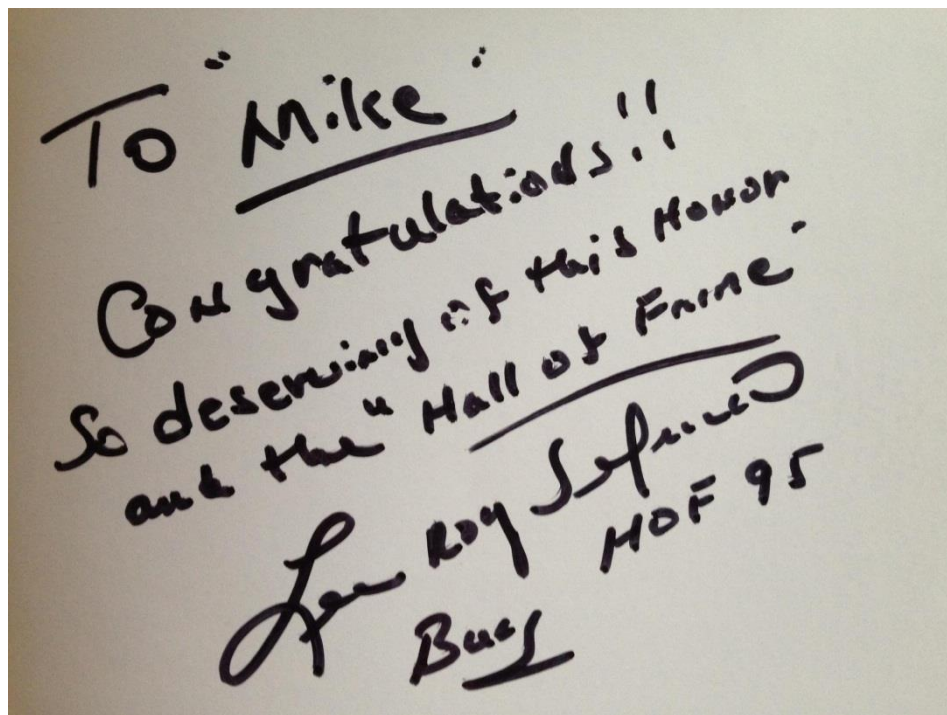 To "Mike"
Congratulations!!
So deserving of this Honor
and the "Hall of Fame"
Lee Roy Selmon
HOF 95
Bucs